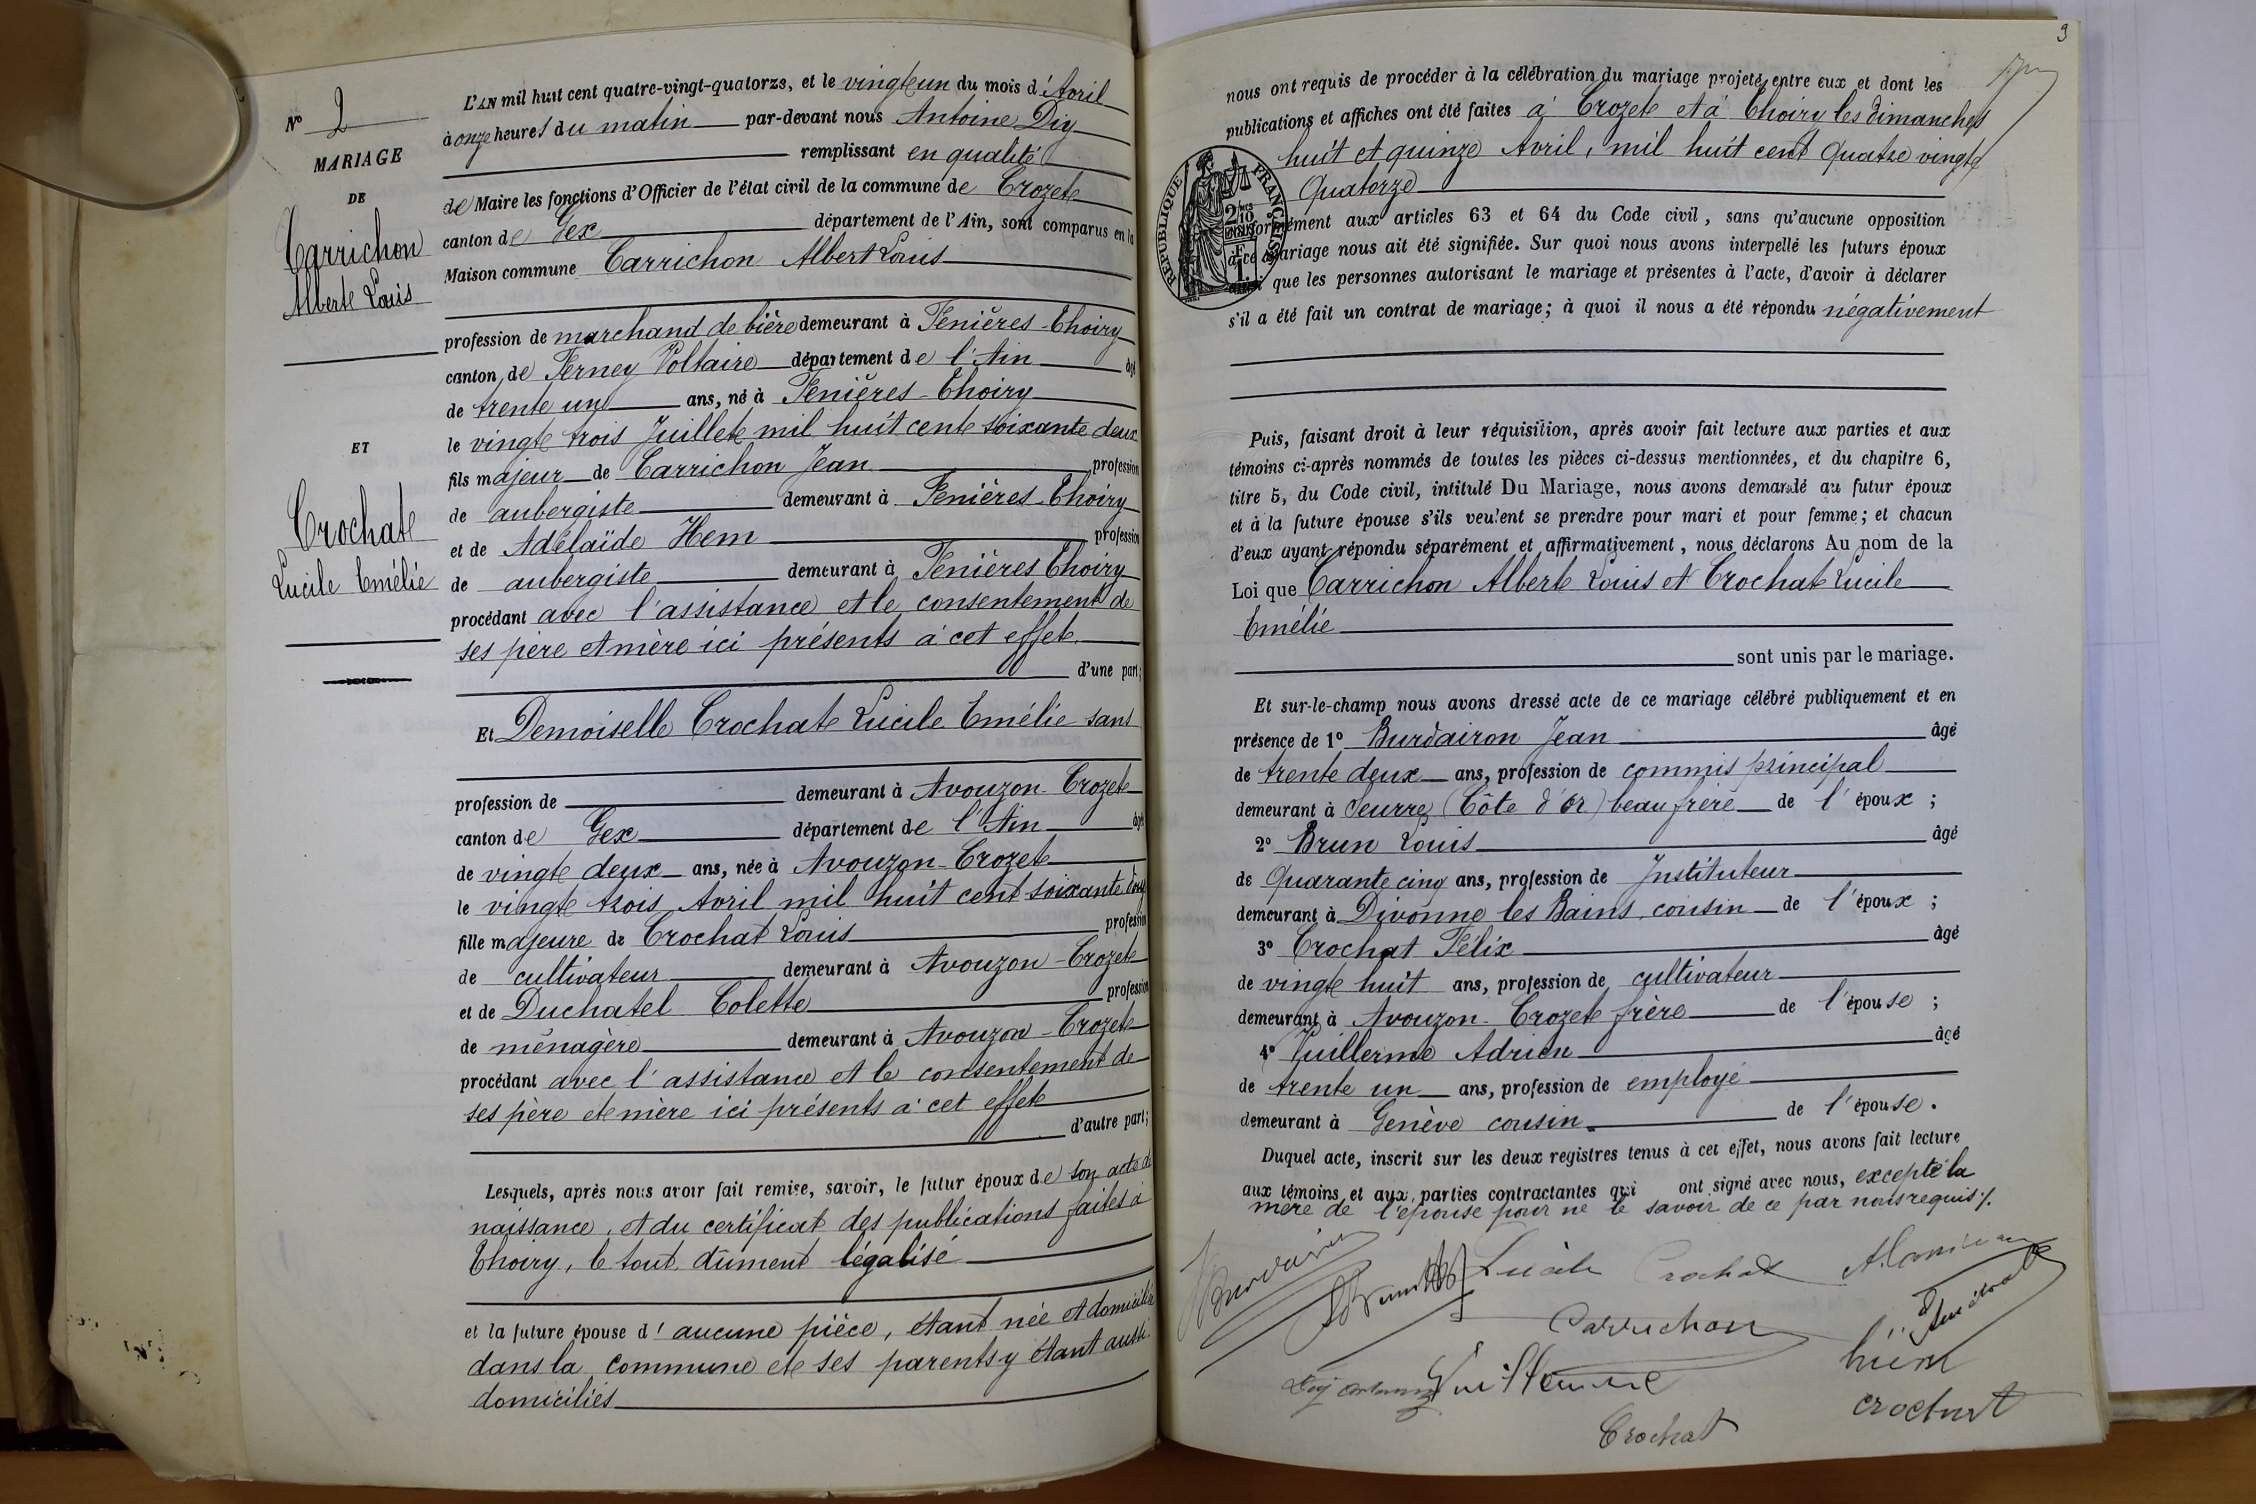 N° 2
MARIAGE
DE
Carrichon
Albert Louis
ET
Crochat
Lucile Emélie
L'AN mil huit cent quatre-vingt-quatorze, et le vingt un du mois d'Avril
à onze heures du matin par-devant nous Antoine Dig
remplissant en qualité
de Maire les fonctions d'Officier de l'état civil de la commune de Crozet
canton de Gex département de l'Ain, sont comparus en la
Maison commune Carrichon Albert Louis
profession de marchand de bière demeurant à Fenières-Thoiry
canton de Ferney Voltaire département de l'Ain âgé
de trente un ans, né à Fenières-Thoiry
le vingt trois Juillet mil huit cent soixante deux
fils majeur de Carrichon Jean profession
de aubergiste demeurant à Fenières-Thoiry
et de Adélaïde Hem profession
de aubergiste demeurant à Fenières Thoiry
procédant avec l'assistance et le consentement de
ses père et mère ici présents à cet effet
d'une part;
Et Demoiselle Crochat Lucile Emélie sans
profession de demeurant à Avouzon-Crozet
canton de Gex département de l'Ain âgé
de vingt deux ans, née à Avouzon-Crozet
le vingt trois Avril mil huit cent soixante
fille majeure de Crochat Louis profession
de cultivateur demeurant à Avouzon-Crozet
et de Duchatel Colette profession
de ménagère demeurant à Avouzon-Crozet
procédant avec l'assistance et le consentement de
ses père et mère ici présents à cet effet
d'autre part;
Lesquels, après nous avoir fait remise, savoir, le futur époux de son acte de
naissance, et du certificat des publications faites à
Thoiry, le tout dûment légalisé
et la future épouse d'aucune pièce, étant née et domiciliée
dans la commune et ses parents y étant aussi
domiciliés
9
nous ont requis de procéder à la célébration du mariage projeté entre eux et dont les
publications et affiches ont été faites à Crozet et à Thoiry les dimanches
huit et quinze Avril, mil huit cent quatre vingt
quatorze
RÉPUBLIQUE FRANÇAISE
conformément aux articles 63 et 64 du Code civil, sans qu'aucune opposition
à ce mariage nous ait été signifiée. Sur quoi nous avons interpellé les futurs époux
ainsi que les personnes autorisant le mariage et présentes à l'acte, d'avoir à déclarer
s'il a été fait un contrat de mariage; à quoi il nous a été répondu négativement
Puis, faisant droit à leur réquisition, après avoir fait lecture aux parties et aux
témoins ci-après nommés de toutes les pièces ci-dessus mentionnées, et du chapitre 6,
titre 5, du Code civil, intitulé Du Mariage, nous avons demandé au futur époux
et à la future épouse s'ils veulent se prendre pour mari et pour femme; et chacun
d'eux ayant répondu séparément et affirmativement, nous déclarons Au nom de la
Loi que Carrichon Albert Louis et Crochat Lucile
Emélie
sont unis par le mariage.
Et sur-le-champ nous avons dressé acte de ce mariage célébré publiquement et en
présence de 1° Burdairon Jean âgé
de trente deux ans, profession de commis principal
demeurant à Seurre (Côte d'Or) beau frère de l'époux;
2° Brun Louis âgé
de Quarante cinq ans, profession de Instituteur
demeurant à Divonne les Bains, cousin de l'époux;
3° Crochat Félix âgé
de vingt huit ans, profession de cultivateur
demeurant à Avouzon-Crozet frère de l'épouse;
4° Guillerme Adrien âgé
de trente un ans, profession de employé
demeurant à Genève cousin de l'épouse.
Duquel acte, inscrit sur les deux registres tenus à cet effet, nous avons fait lecture
aux témoins et aux parties contractantes qui ont signé avec nous, excepté la
mère de l'épouse pour ne le savoir de ce par nous requis %.
Burdairon
Lucile Crochat
Carrichon
Guillerme
Crochat
crochat